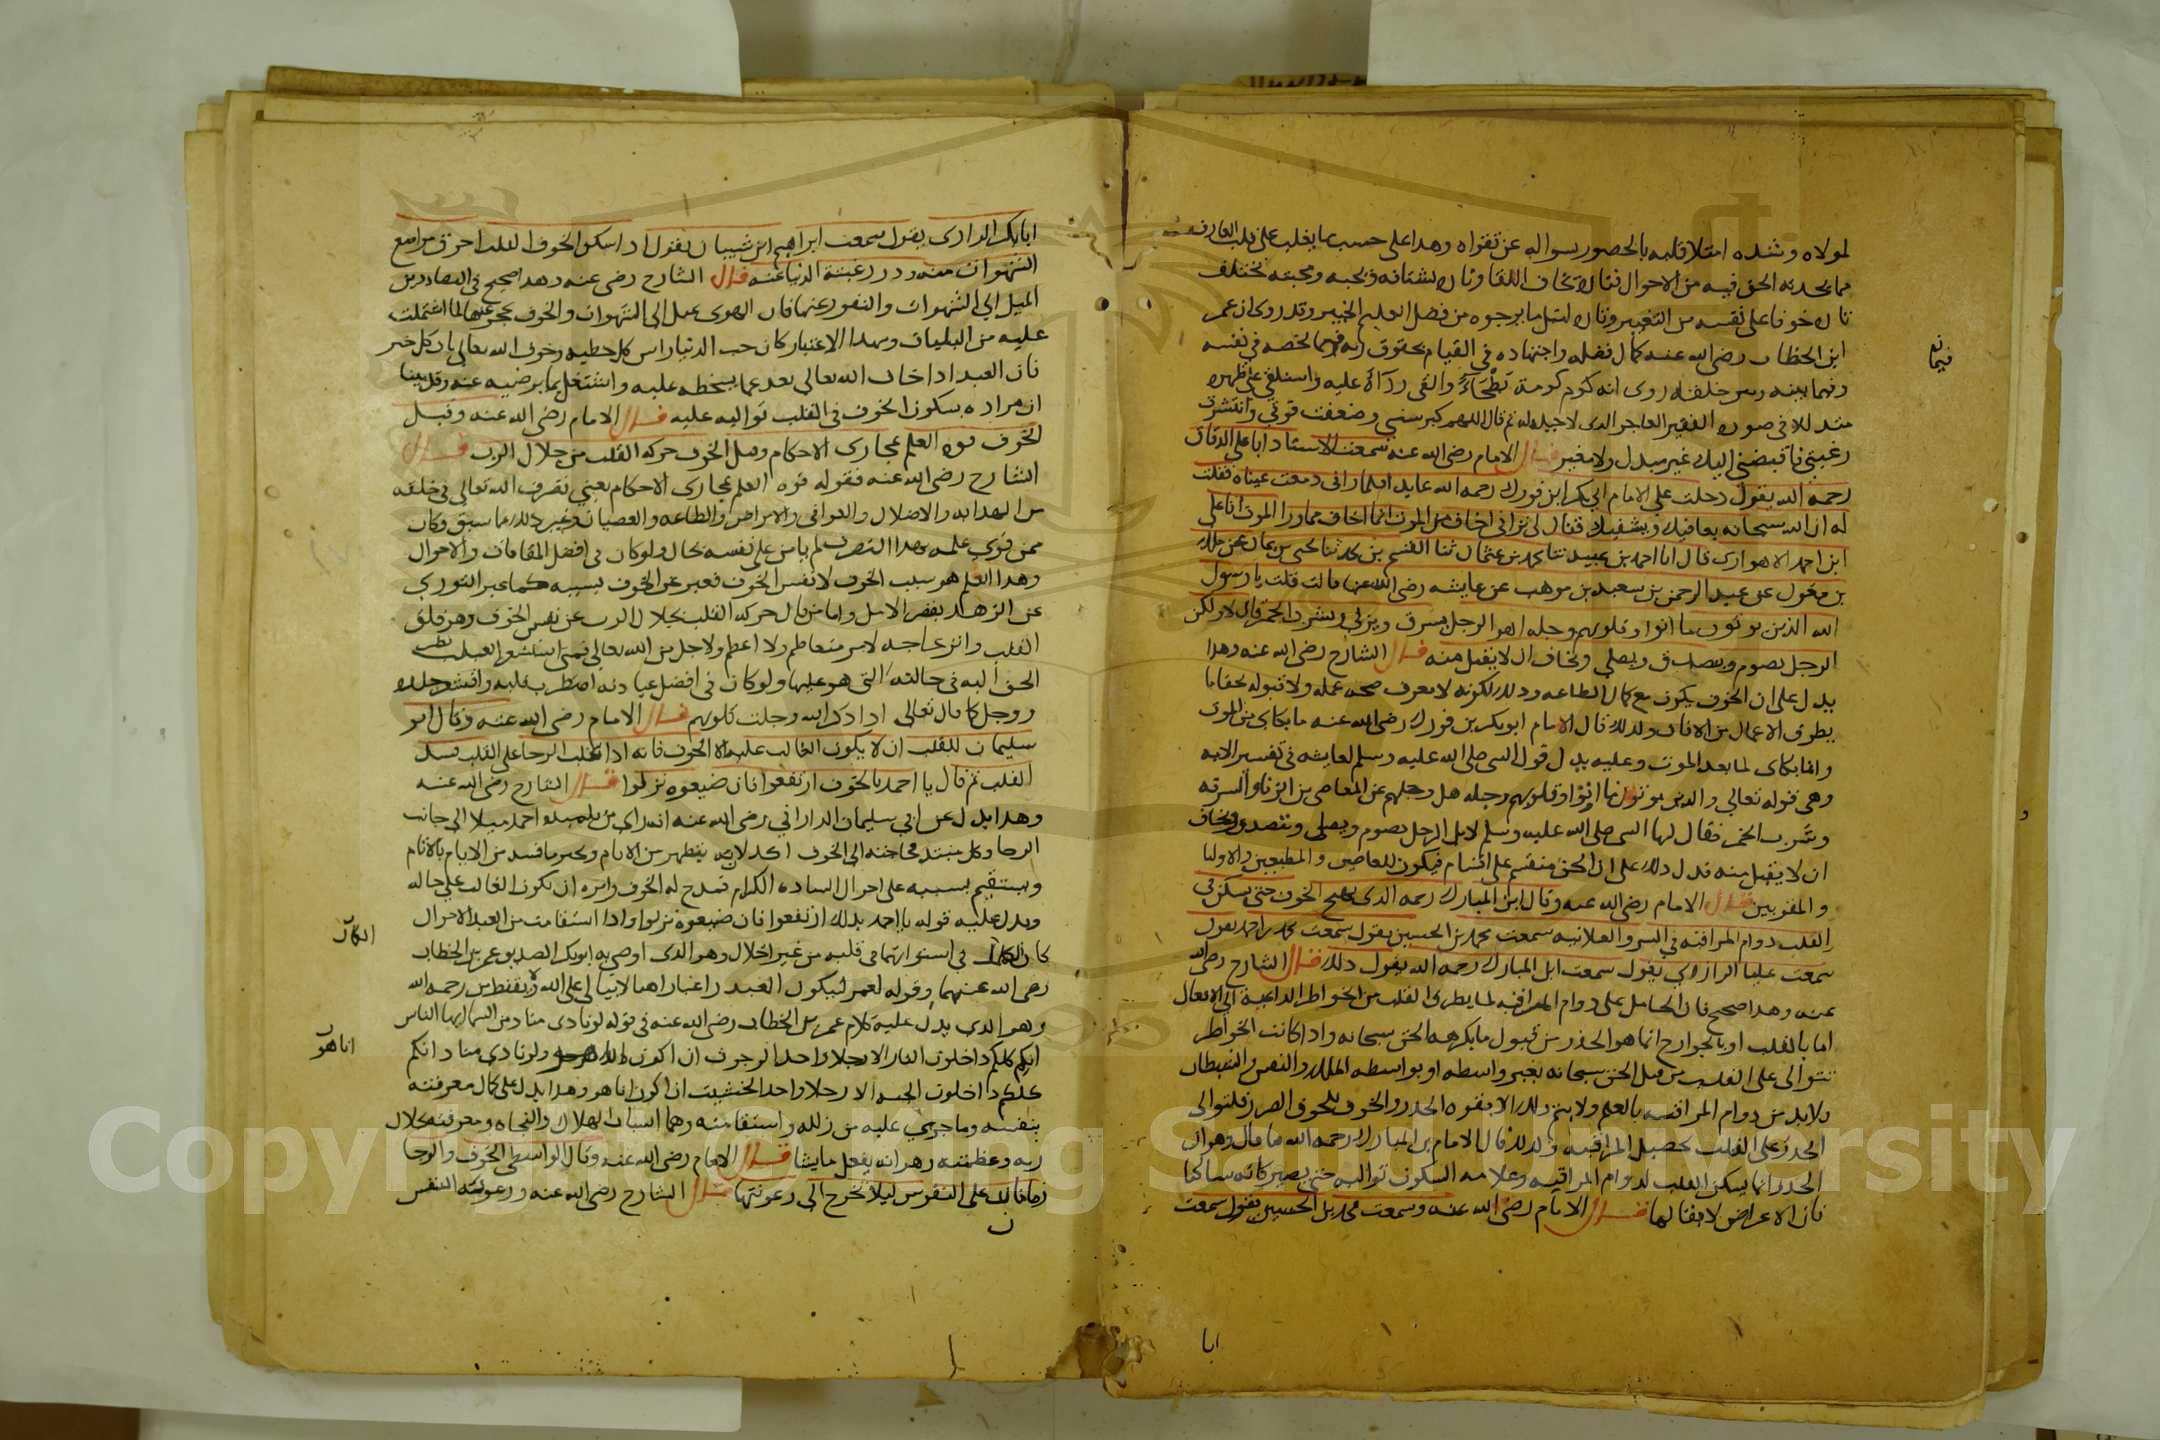 لمولاه وشده امتلا قلبه بالحصور بسواله عن تقواه وهدا على حسب ما يغلب على قلب العارف
مما يحدثه الحق فيه من الاحوال فتاره يخاف اللقا وتاره يشتاقه ويحبه ومحبته تختلف
تاره خوفا على نفسه من التغيير وتاره لنيل ما يرجوه من فضل العليم الخبير وقد روي ان عمر
ابن الخطاب رضي الله عنه كمال فضله واجتهاده في القيام بحقوق الله فيما يخصه في نفسه
وفيما بينه وبين خلقه روى انه كوم كومة بطحاء والقى رداءه عليه واستلقى على ظهره
متدللا في صورة الفقير العاجز الدي لا حيلة له ثم قال اللهم كبر سني وضعفت قوتي وانتشرت
رعيتي فاقبضني اليك غير مبدل ولا مغير قال الامام رضي الله عنه سمعت الاستاد ابا علي الدقاق
رحمه الله يقول دخلت على الامام ابي بكر ابن فورك رحمه الله عايدا فلما راني دمعت عيناه فقلت
له ان الله سبحانه يعافيك ويشفيك فقال لي تراني اخاف من الموت انما اخاف مما ورا الموت انا علي
ابن احمد الاهوازي قال انا احمد بن عبيد ثنا محمد بن عثمان ثنا القسم بن محمد ثنا يحيى بن يمان عن ملك
بن مغول عن عبد الرحمن بن سعيد بن موهب عن عايشه رضي الله عنها قالت قلت يا رسول
الله الذين يوتون ما اتوا وقلوبهم وجله اهو الرجل يسرق ويزني ويشرب الخمر قال لا ولكن
الرجل يصوم ويصدق ويصلي ويخاف ان لا يقبل منه قال الشارح رضي الله عنه وهدا
يدل على ان الخوف يكون مع كمال الطاعه ودلك لكونه لا يعرف صحه عمله ولا قبوله لخفا ما
يطرق الاعمال من الافات ولدلك قال الامام ابو بكر بن فورك رضي الله عنه ما بكاي من الموت
وانما بكاي لما بعد الموت وعليه يدل قول النبي صلى الله عليه وسلم لعايشه في تفسير الايه
وهي قوله تعالي والدين يوتون ما اتوا وقلوبهم وجله هل وجلهم عن المعاصي من الزنا والسرقه
وشرب الخمر فقال لها النبي صلى الله عليه وسلم لا بل الرجل يصوم ويصلي ويتصدق ويخاف
ان لا يقبل منه فدل دلك على ان الحق منقسم على اقسام فيكون للعاصين والمطيعين والاوليا
والمقربين قال الامام رضي الله عنه وقال ابن المبارك رحمه الله الدي يهيج الخوف حتى يسكن في
القلب دوام المراقبه في السر والعلانيه سمعت محمد بن الحسين يقول سمعت محمد بن احمد يقول
سمعت عليا الرازي يقول سمعت ابن المبارك رحمه الله يقول دلك قال الشارح رضي الله
عنه وهدا صحيح فان الحامل على دوام المراقبه لما يطرق القلب من الخواطر الداعية الى الافعال
اما بالقلب او بالجوارح انما هو الحذر من قبول ما يكرهه الحق سبحانه وادا كانت الخواطر
تتوالى على القلب من قبل الحق سبحانه بغير واسطه او بواسطه الملك والنفس والشيطان
ولابد من دوام المراقبه بالعلم ولا يتم دلك الا بقوه الحدر والخوف للحوق الضرر فلتوالي
الحذر على القلب تحصيل المراقبه ولدلك قال الامام بن المبارك رحمه الله ما قال وهو ان
الحذر انما يسكن القلب لدوام المراقبه وعلامه السكون تواليه حتى يصير كانه ساكنا
فان الاعراض لا بقا لها قال الامام رضي الله عنه وسمعت محمد بن الحسين يقول سمعت
ابا
فيما
ابا بكر الرازي يقول سمعت ابراهيم ابن شيبان يقول ادا سكن الخوف القلب احرق مواضع
الشهوات منه وطرد رغبة الدنيا عنه قال الشارح رضي عنه وهدا صحيح في التضاد بين
الميل الي الشهوات والنفور عنها فان الهوى يميل الى الشهوات والخوف يحجز عنها لما اشتملت
عليه من البليات وبهدا الاعتبار كان حب الدنيا راس كل خطيه وخوف الله تعالى راس كل خير
فان العبد ادا خاف الله تعالى بعد عما يسخطه عليه واشتغل بما يرضيه عنه وقد بينا
ان مراده بسكون الخوف في القلب تواليه عليه قال الامام رضي الله عنه وقيل
الخوف قوه العلم بمجاري الاحكام وقيل الخوف حركه القلب من جلال الرب قال
الشارح رضي الله عنه فقوله قوه العلم بمجاري الاحكام يعني تصرف الله تعالى في خلقه
من الهدايه والاضلال والعوافي والامراض والطاعه والعصيان وغير دلك ما سبق وكان
ممن قوي علمه بهدا التصرف لم يامن على نفسه بحال ولو كان في افضل المقامات والاحوال
وهدا العلم هو سبب الخوف لا نفس الخوف فعبر عن الخوف بسببه كما عبر الثوري
عن الزهد بقصر الامل واما من قال حركه القلب لجلال الرب عن نفس الخوف وهو قلق
القلب وانزعاجه لامر متعاظم ولا اعظم ولا اجل من الله تعالى فمتى استشعر العبد نظر
الحق اليه في حالته التي هو عليها ولو كان في افضل عباداته اضطرب قلبه واقشعر جلده
ووجل كما قال تعالى ادا دكر الله وجلت قلوبهم قال الامام رضي الله عنه وقال ابو
سليمان للقلب ان لا يكون الغالب عليه الا الخوف فانه ادا غلب الرجا على القلب فسد
القلب ثم قال يا احمد بالخوف ارتفعوا فان ضيعوه نزلوا قال الشارح رضي الله عنه
وهدا يدل عن ابي سليمان الداراني رضي الله عنه انه راى من تلميده احمد ميلا الى جانب
الرجا وكل مبتد محاجته الى الخوف اكد لانه يتطهر من الاثام ويجبر ما فسد من الايام بالاثام
ويستقيم بسببه على احوال الساده الكرام فمدح له الخوف وامره ان يكون الغالب على حاله
ويدل عليه قوله يا احمد بدلك ارتفعوا فان ضيعوه نزلوا وادا استقامت من العبد الاحوال
كان الكمال في استوايهما في قلبه من غير اخلال وهو الدي اوصى به ابو بكر الصديق عمر بن الخطاب
رضي الله عنهما وقوله لعمر ليكون العبد راغبا راهبا لايتالى على الله ولا يقنط من رحمه الله
وهو الدي يدل عليه كلام عمر بن الخطاب رضي الله عنه في قوله لو نادى مناد من السما ايها الناس
انكم كلكم داخلون النار الا رجلا واحدا لرجوت ان اكون ولو نادى مناد انكم
كلكم داخلون الجنه الا رجلا واحدا لخشيت ان اكون انا هو وهدا يدل على كمال معرفته
بنفسه وما جرى عليه من زلله واستقامته وهما اسباب الهلاك والنجاه ومعرفته بجلال
ربه وعظمته وهو انه يفعل ما يشا قال الامام رضي الله عنه وقال الواسطي الخوف والرجا
زمامان على النفوس ليلا تخرج الى رعوناتها قال الشارح رضي الله عنه ورعونه النفس
الكمال
انا هو